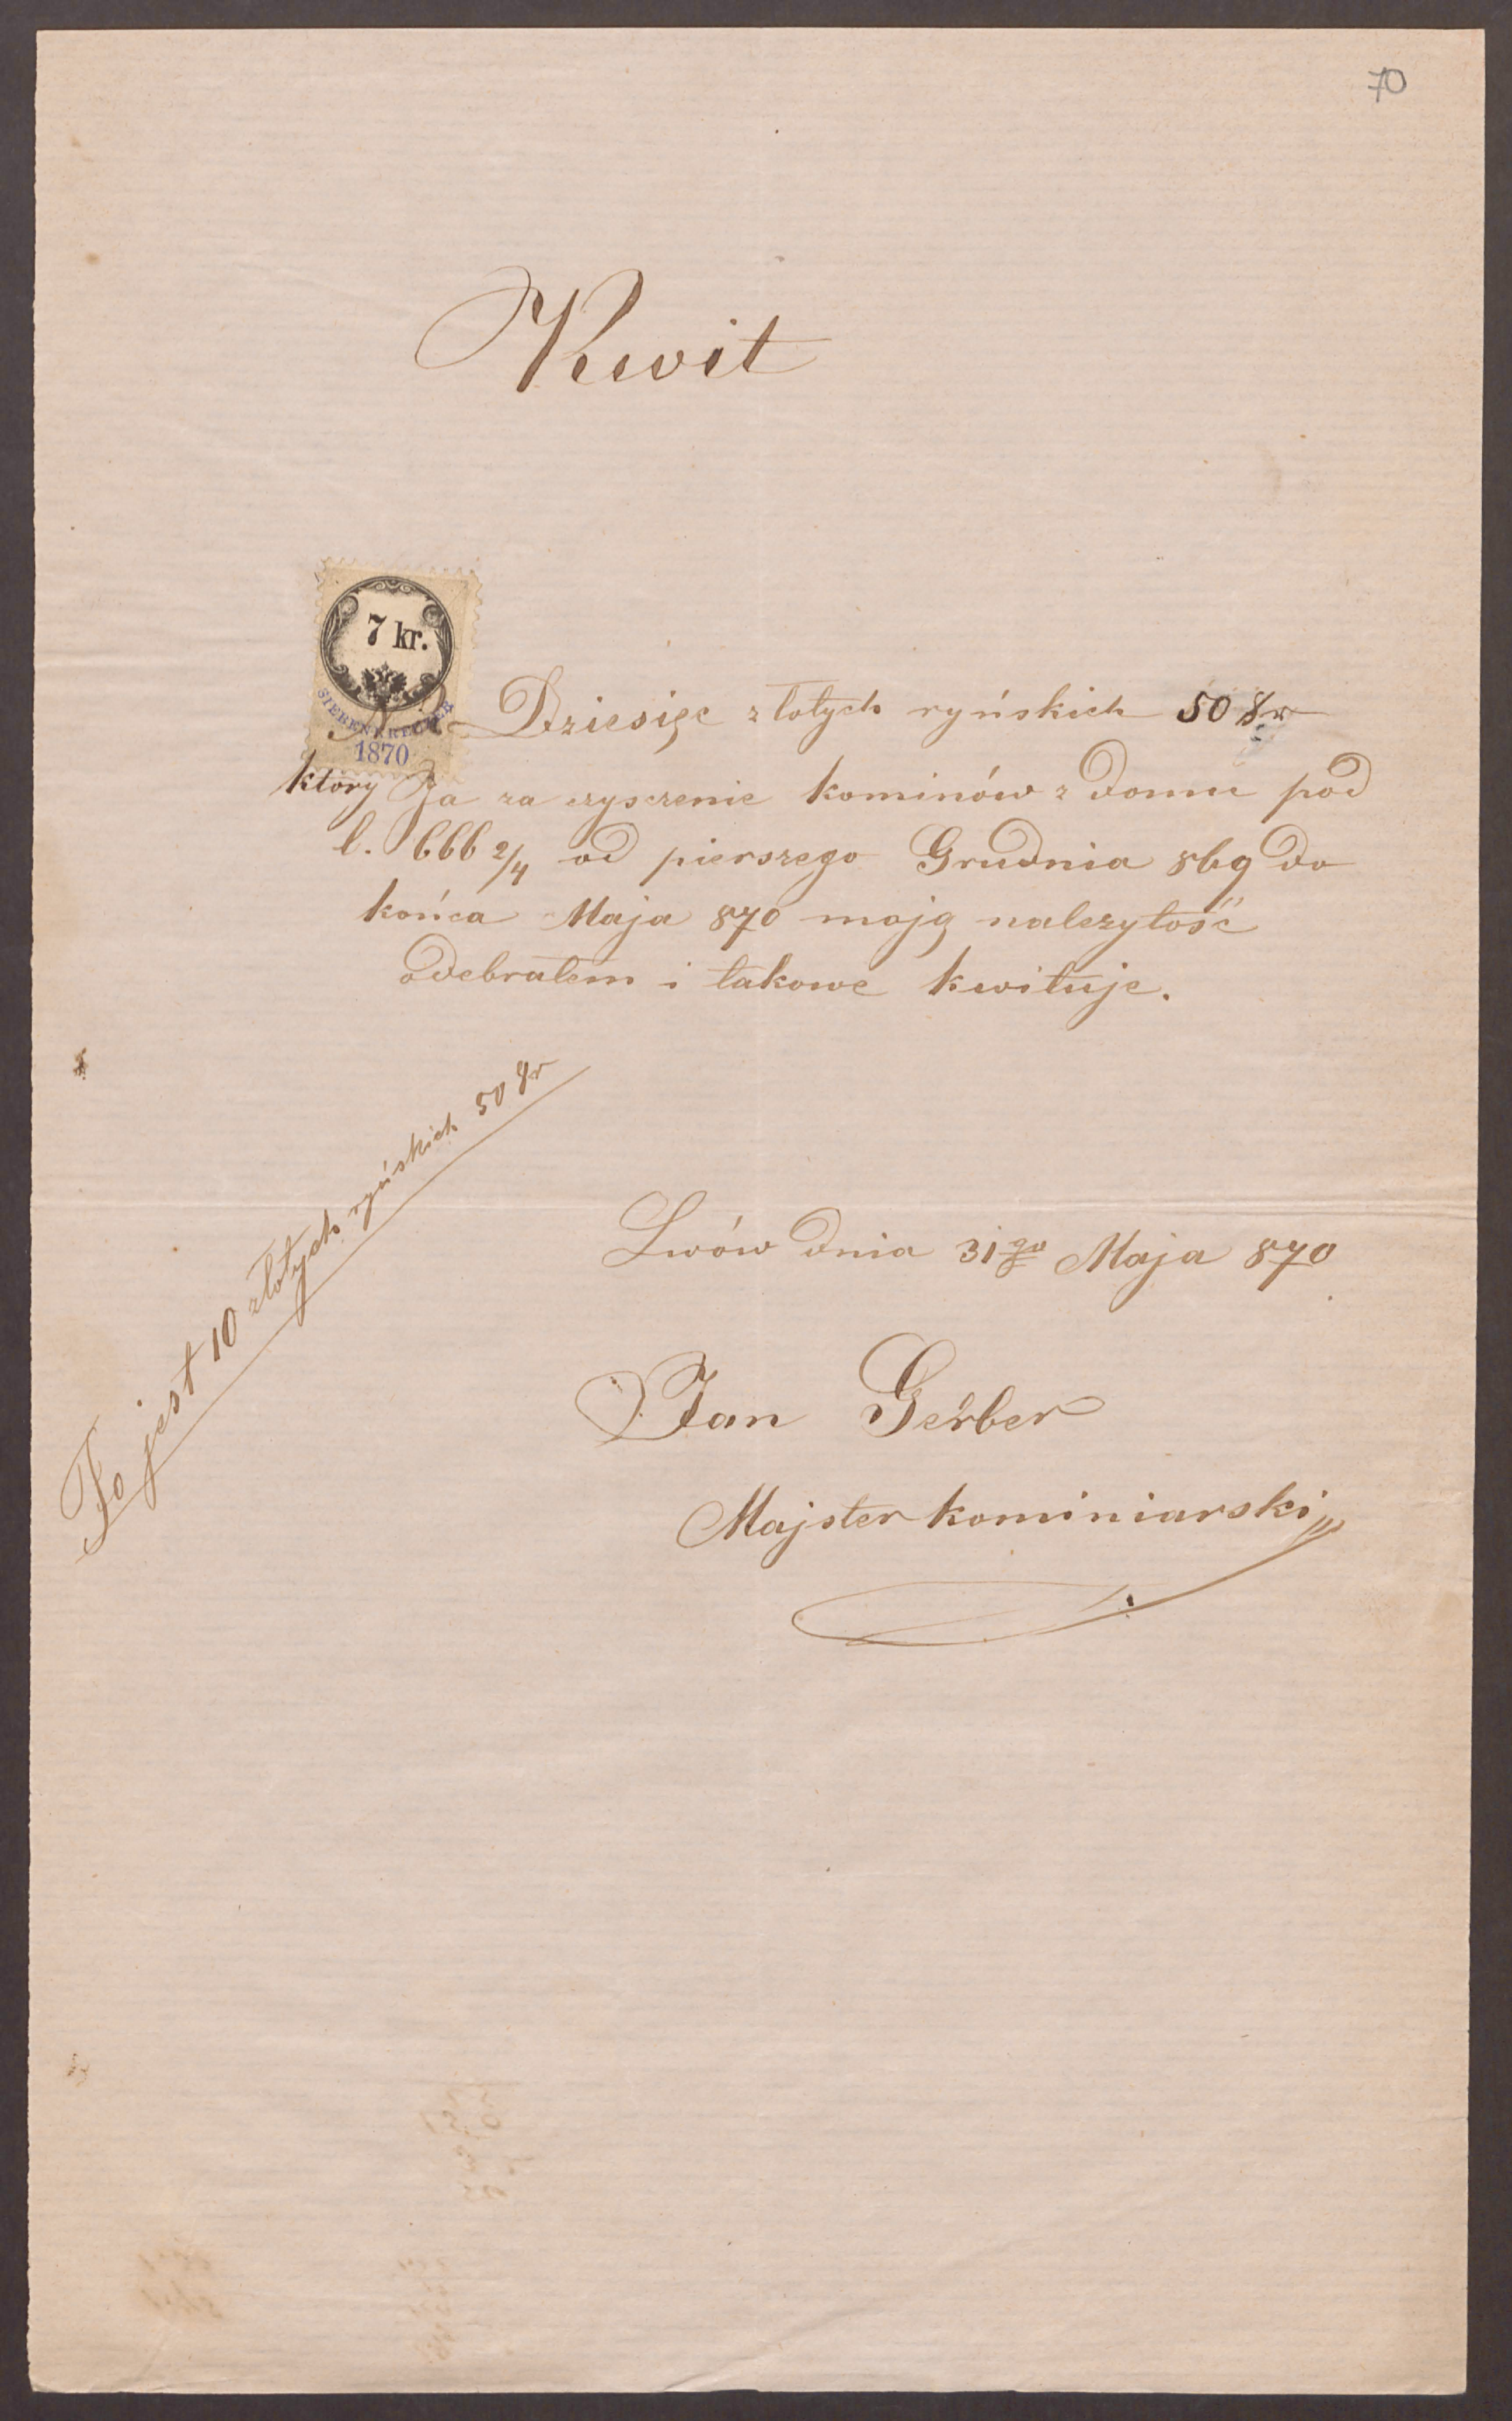 70
Kwit
7 kr.
SIEBEN KREUZER
1870
Na Dziesięc złotych ryńskich 50 gr
który Ja za czysczenie kominów z domu pod
l. 666 2/4 od pierszego Grudnia 869 do
końca Maja 870 moją należytość
odebrałem i takowe kwituje.
To jest 10 złotych ryńskich 50 gr
Lwów dnia 31go Maja 870
Jan Gerber
Majster kominiarski